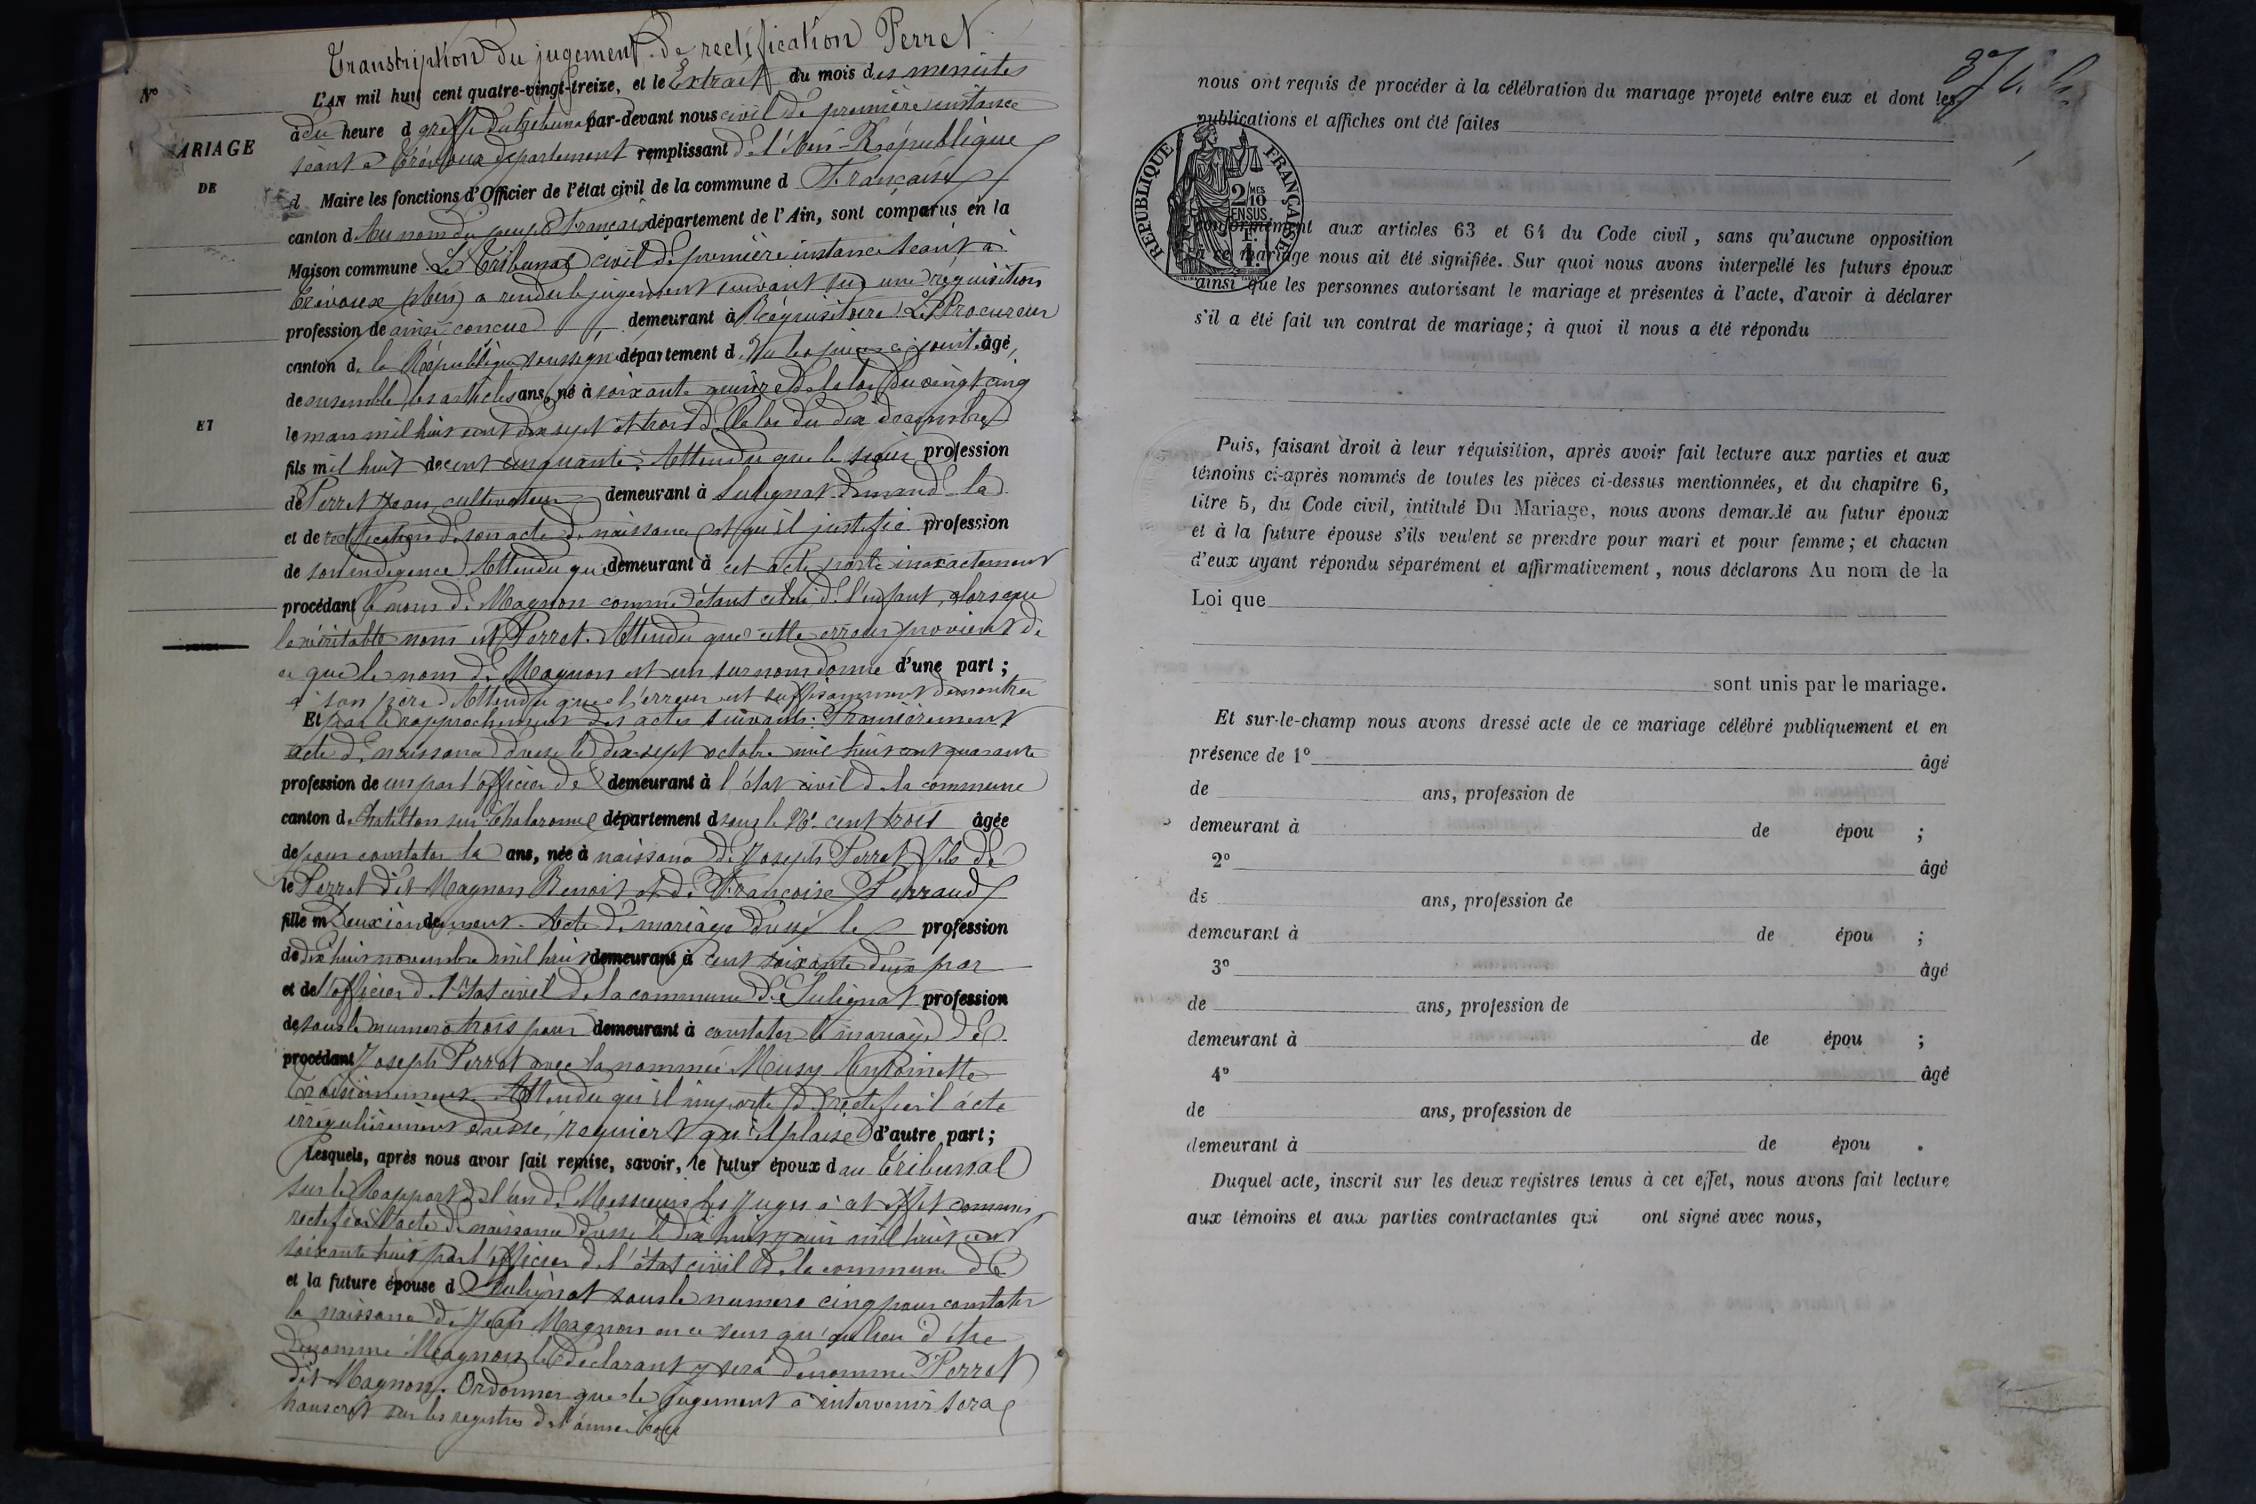 Transcription du jugement de rectification Perret
N°
L'AN mil huit cent quatre-vingt-treize, et le Extrait du mois des minutes
à du heure d greffe du tribunal par-devant nous civil de première instance
MARIAGE
séant à Trévoux département remplissant de l'Ain République
DE
d Maire les fonctions d'Officier de l'état civil de la commune d Française
canton d Au nom du peuple Français département de l'Ain, sont comparus en la
Maison commune Le Tribunal civil de première instance séant à
Trévoux (Ain) a rendu le jugement suivant sur une requisition
profession de ainsi concue demeurant à Réquisitoire Le Procureur
canton d. la République soussigné département d. Vu les pièces ci jointes, âgé
de ensemble les articles ans, né à soixante quinze de la loi du vingt cinq
ET
le mars mil huit cent dix sept et trois de la loi du dix décembre
fils mil huit de cent cinquante. Attendu que le sieur profession
de Perret Jean cultivateur demeurant à Sulignat demande la
et de rectification de son acte de naissance et qu'il justifie profession
de son indigence Attendu que demeurant à cet acte porte inexactement
procédant le nom de Magnon comme étant celui de l'enfant, alors que
le véritable nom est Perret. Attendu que cette erreur provient de
ce que le nom de Magnon est un surnom donné d'une part ;
à son père Attendu que l'erreur est suffisamment démontrée
Et par le rapprochement des actes suivants: Premièrement
acte de naissance dressé le dix-sept octobre mil huit cent quarante
profession de un par l'officier de demeurant à l'état civil de la commune
canton d. Chatillon sur Chalaronne département d sous le N° cent trois âgée
de pour constater la ans, née à naissance de Joseph Perret fils de
le Perret dit Magnon Benoit et de Françoise Perraud
fille m Deuxièmement de Acte de mariage dressé le profession
de dix huit novembre mil huit demeurant à cent soixante deux par
et de l'officier de l'état civil de la commune de Sulignat profession
de sous le numero trois pour demeurant à constater le mariage de
procédant Joseph Perret avec la nommée Musy Antoinette
Troisièmement Attendu qu'il importe de rectifier l'acte
irrégulièrement dressé, requiert qu'il plaise d'autre part ;
Lesquels, après nous avoir fait remise, savoir, le futur époux d au Tribunal
sur le Rapport de l'un de Messieurs les Juges à cet effet commis
rectifier l'acte de naissance dressé le dix huit juin mil huit cent
soixante huit par l'officier de l'état civil de la commune de
et la future épouse d Sulignat sous le numero cinq pour constater
la naissance de Jean Magnon en ce sens qu'au lieu d'être
denommé Magnon le déclarant y sera denommé Perret
dit Magnon. Ordonner que le jugement à intervenir sera
transcrit sur les registres de l'année
nous ont requis de procéder à la célébration du mariage projeté entre eux et dont les
publications et affiches ont été faites
REPUBLIQUE FRANÇAISE
2 MES
10
EN SUS
1 F.
conformément aux articles 63 et 64 du Code civil, sans qu'aucune opposition
à ce mariage nous ait été signifiée. Sur quoi nous avons interpellé les futurs époux
ainsi que les personnes autorisant le mariage et présentes à l'acte, d'avoir à déclarer
s'il a été fait un contrat de mariage; à quoi il nous a été répondu
Puis, faisant droit à leur réquisition, après avoir fait lecture aux parties et aux
témoins ci-après nommés de toutes les pièces ci-dessus mentionnées, et du chapitre 6,
titre 5, du Code civil, intitulé Du Mariage, nous avons demandé au futur époux
et à la future épouse s'ils veulent se prendre pour mari et pour femme; et chacun
d'eux ayant répondu séparément et affirmativement, nous déclarons Au nom de la
Loi que
sont unis par le mariage.
Et sur-le-champ nous avons dressé acte de ce mariage célébré publiquement et en
présence de 1° âgé
de ans, profession de
demeurant à de épou ;
2° âgé
de ans, profession de
demeurant à de épou ;
3° âgé
de ans, profession de
demeurant à de épou ;
4° âgé
de ans, profession de
demeurant à de épou .
Duquel acte, inscrit sur les deux registres tenus à cet effet, nous avons fait lecture
aux témoins et aux parties contractantes qui ont signé avec nous,